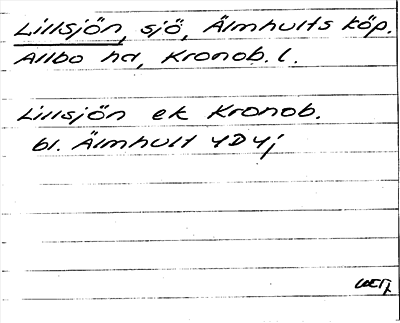 Lillsjön, sjö, Älmhults köp.
Allbo hd, Kronob. l.
Lillsjön ek Kronob.
bl. Älmhult 4D4j